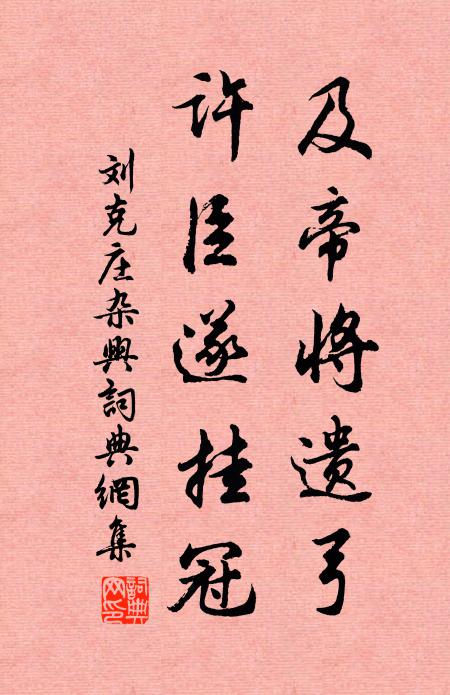 及帝将遗弓
许臣遂挂冠
刘克庄杂興詞典網集
詞典網印